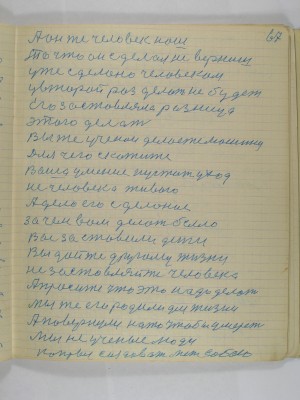 67
А он же человек наш
То что он сделал не вернеш
уже сделано человеком
увторой раз делат не будет
Его заставляла разница
этого делат
Вы же учение делаете машину
Для чего скажите
не человека живого
А дело его сделоное
зачем вам делат было
Вас заставили дети
Вы дайте другому жизни
не заставляйте человека
А просите что это надо делат
Мы же его родили для жизни
А повернули на то чтобы умерет
Мы не ученые люди